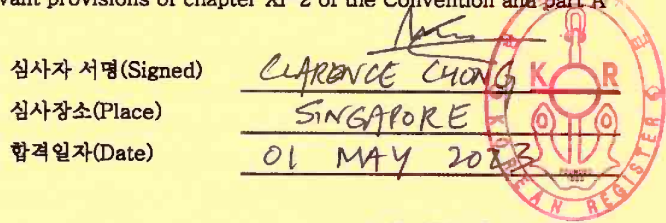 vant provisions of chapter XI-2 of the Convention and part A
심사자 서명(Signed) CLARENCE CHONG
심사장소(Place) SINGAPORE
합격일자(Date) 01 MAY 2023
K R
KOREAN REGISTER